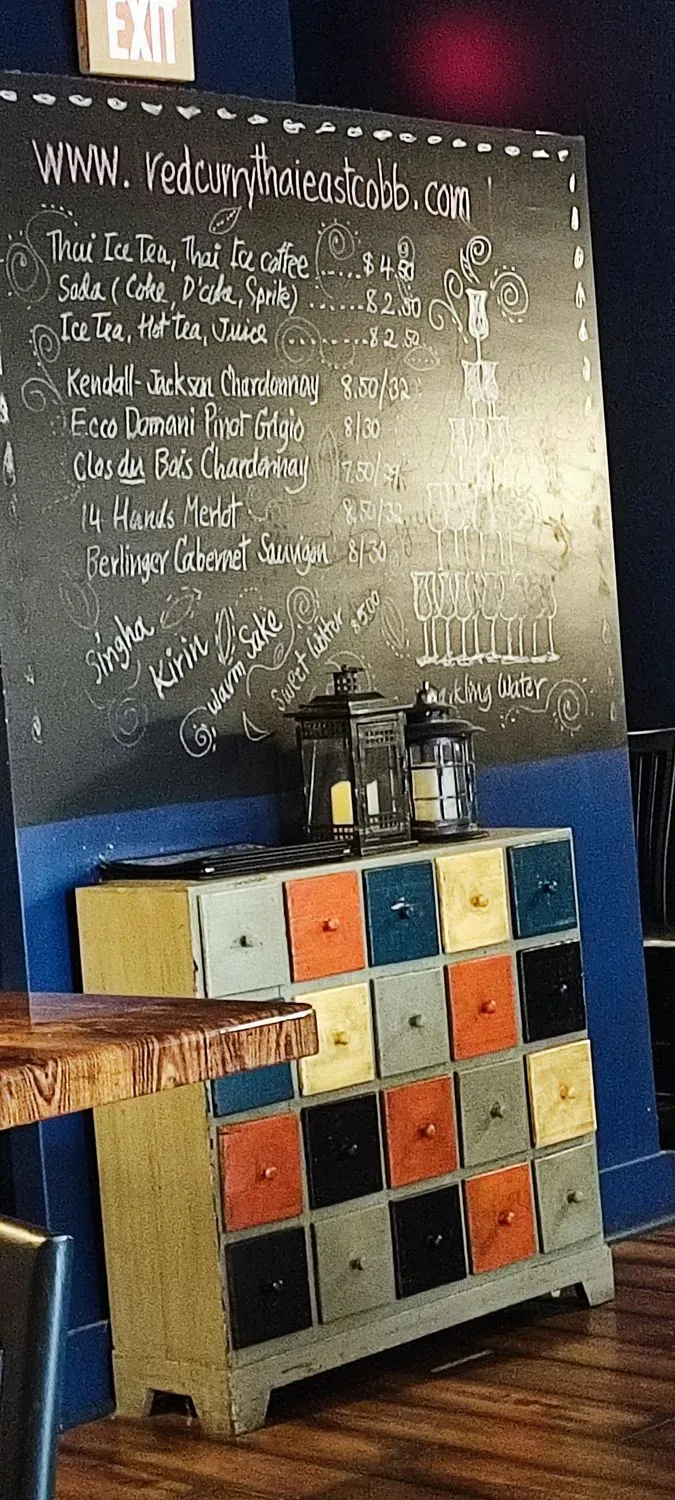 EXIT
www.redcurrythaieastcobb.com
Thai Ice Tea, Thai Ice coffee ..... $4.50
Soda (Coke, D'coke, Sprite) ....... $2.50
Ice Tea, Hot Tea, Juice ......... $2.50
Kendall-Jackson Chardonnay 8.50/32
Ecco Domani Pinot Grigio 8/30
Clos du Bois Chardonnay 7.50/
14 Hands Merlot 8.50/32
Berlinger Cabernet Sauvigon 8/30
Singha
Kirin
Warm Sake
Sweet
Water